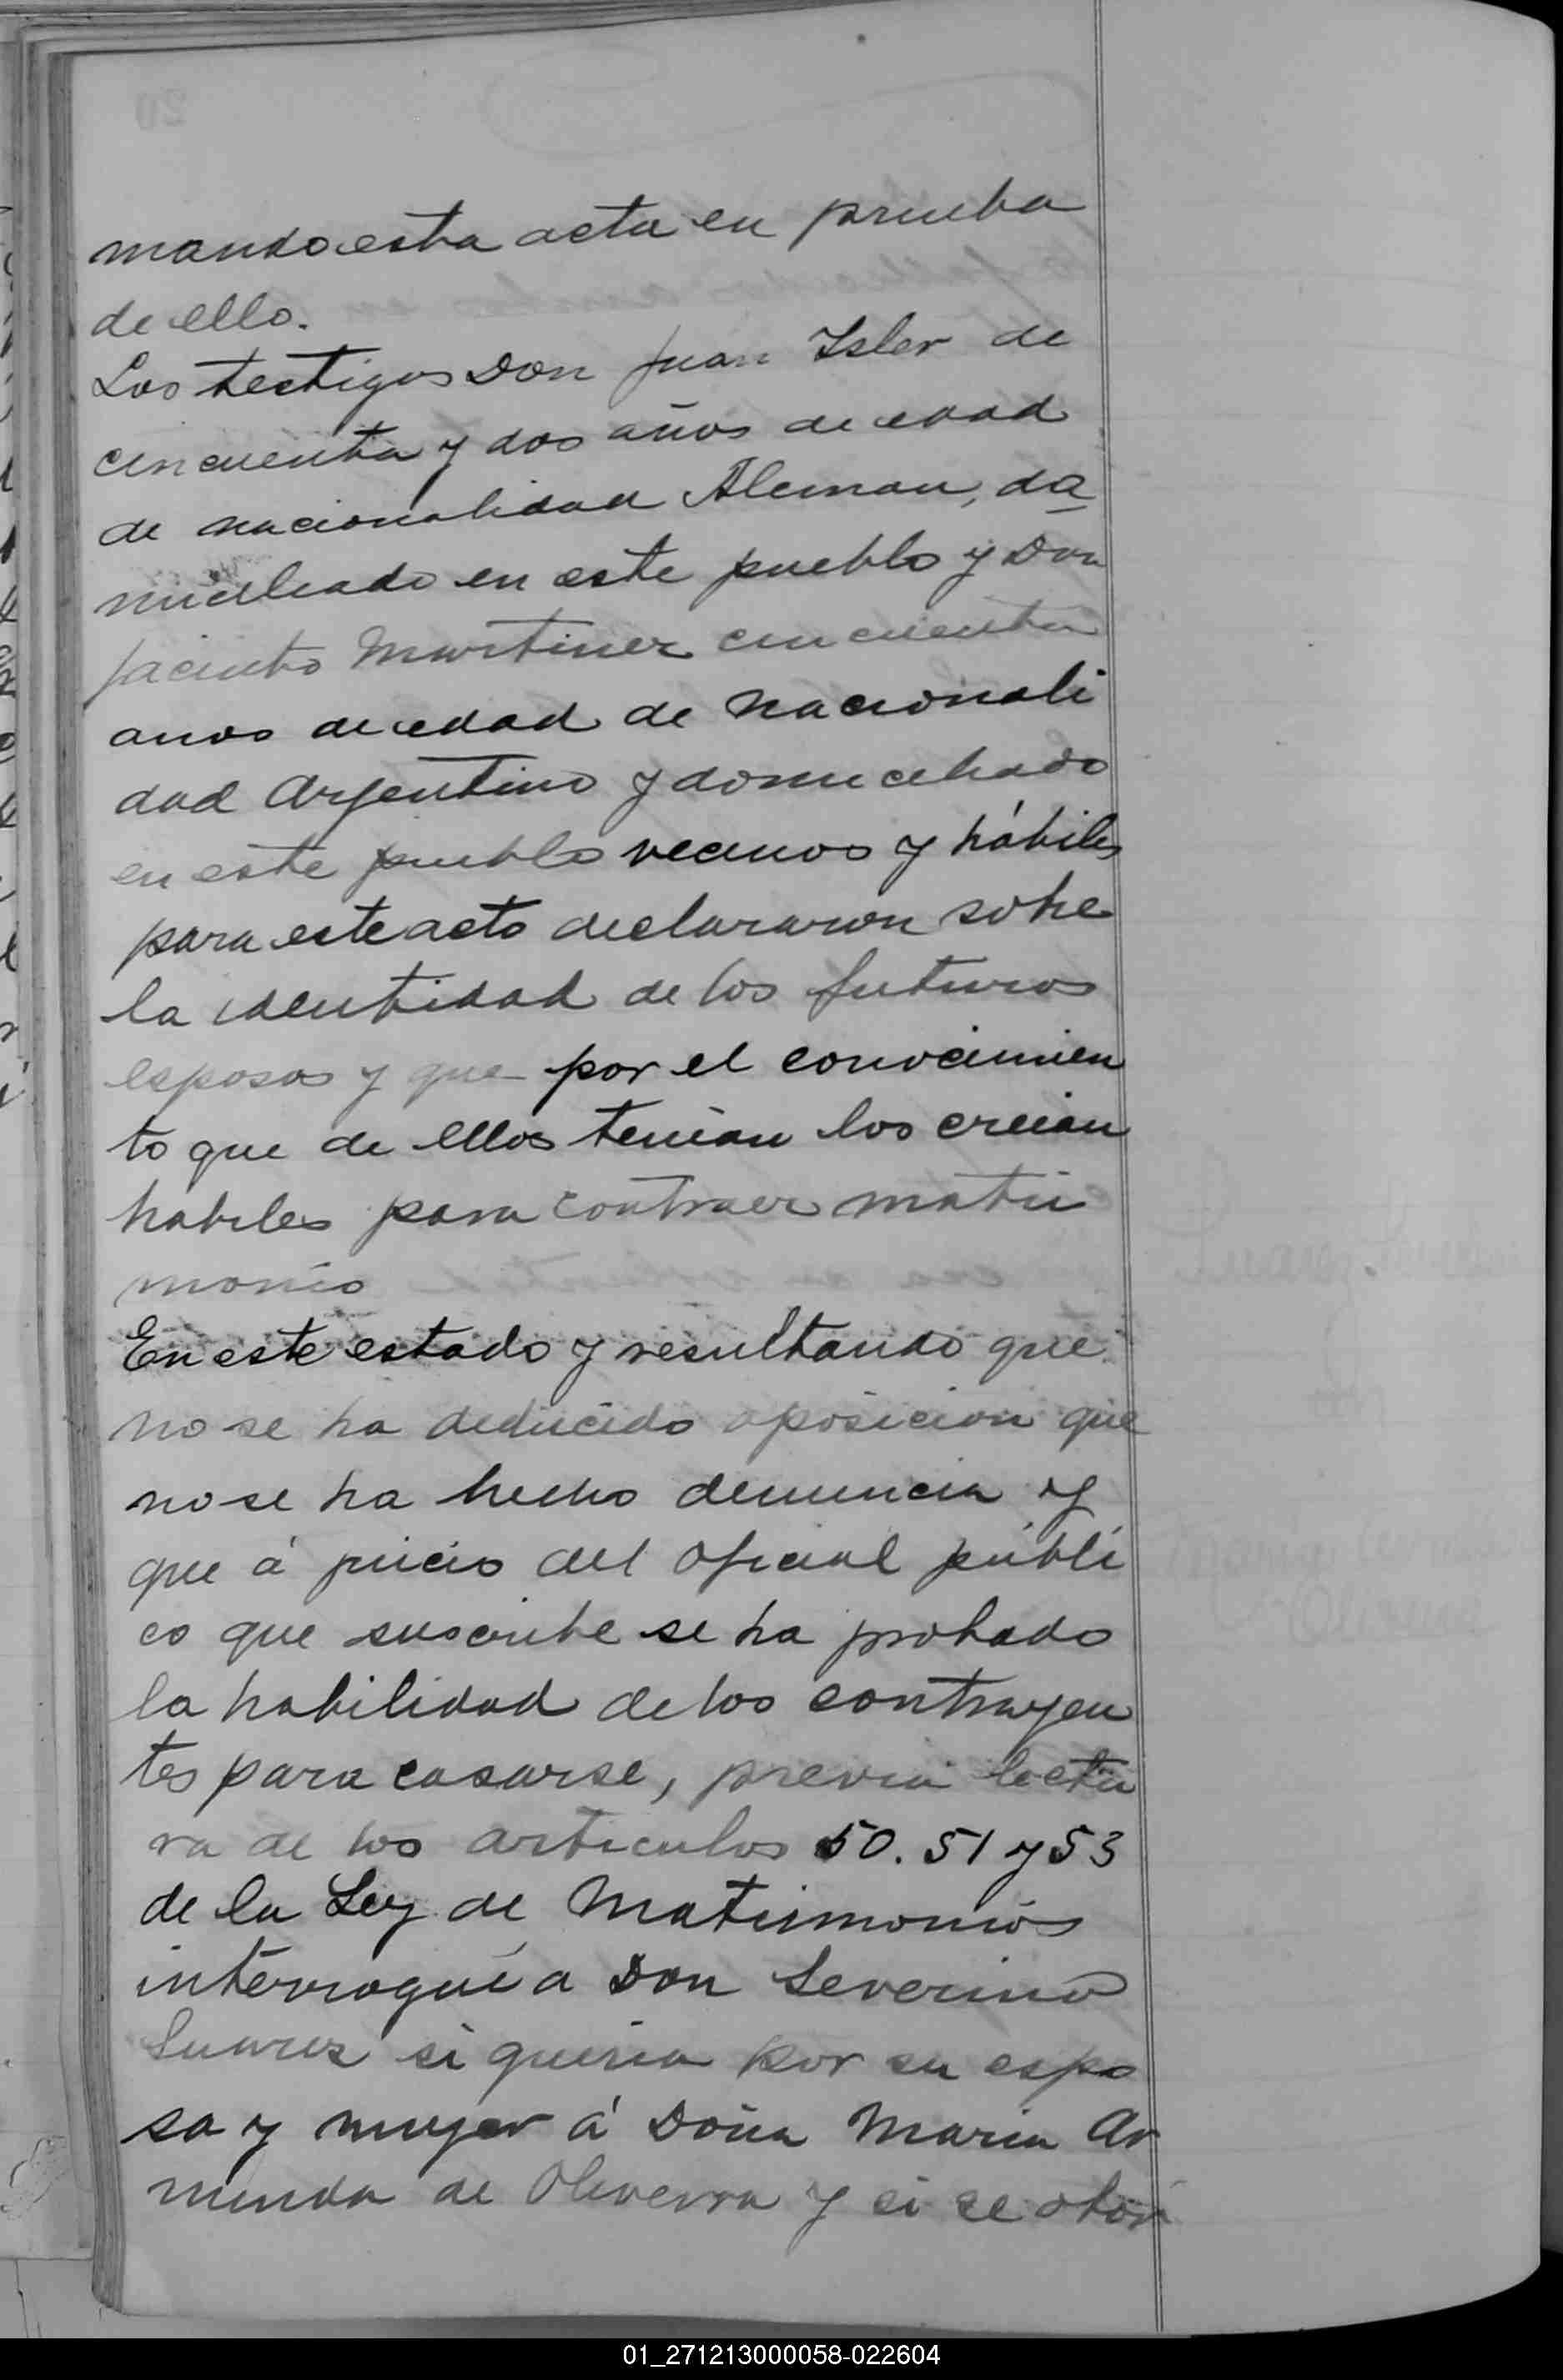 mando esta acta en prueba
de ello.
Los testigos Don Juan Isler de
cincuenta y dos años de edad
de nacionalidad Aleman, do
miciliado en este pueblo y Don
Jacinto Martinez cincuenta
anos de edad de nacionali
dad Argentino y domiciliado
en este pueblo vecinos y hábiles
para este acto declararon sobre
la identidad de los futuros
esposos y que por el conocimien
to que de ellos tenian los creian
habiles para contraer matri
monio
En este estado y resultando que
no se ha deducido oposicion que
no se ha hecho denuncia y
que á juicio del oficial públi
co que suscribe se ha probado
la habilidad de los contrayen
tes para casarse, previa lectu
ra de los articulos 50. 51 y 53
de la Ley de Matrimonios
interrogué a Don Severino
Suarez si queria por su espo
sa y mujer á Doña Maria Ar
minda de Oliverra y si se
01_271213000058-022604